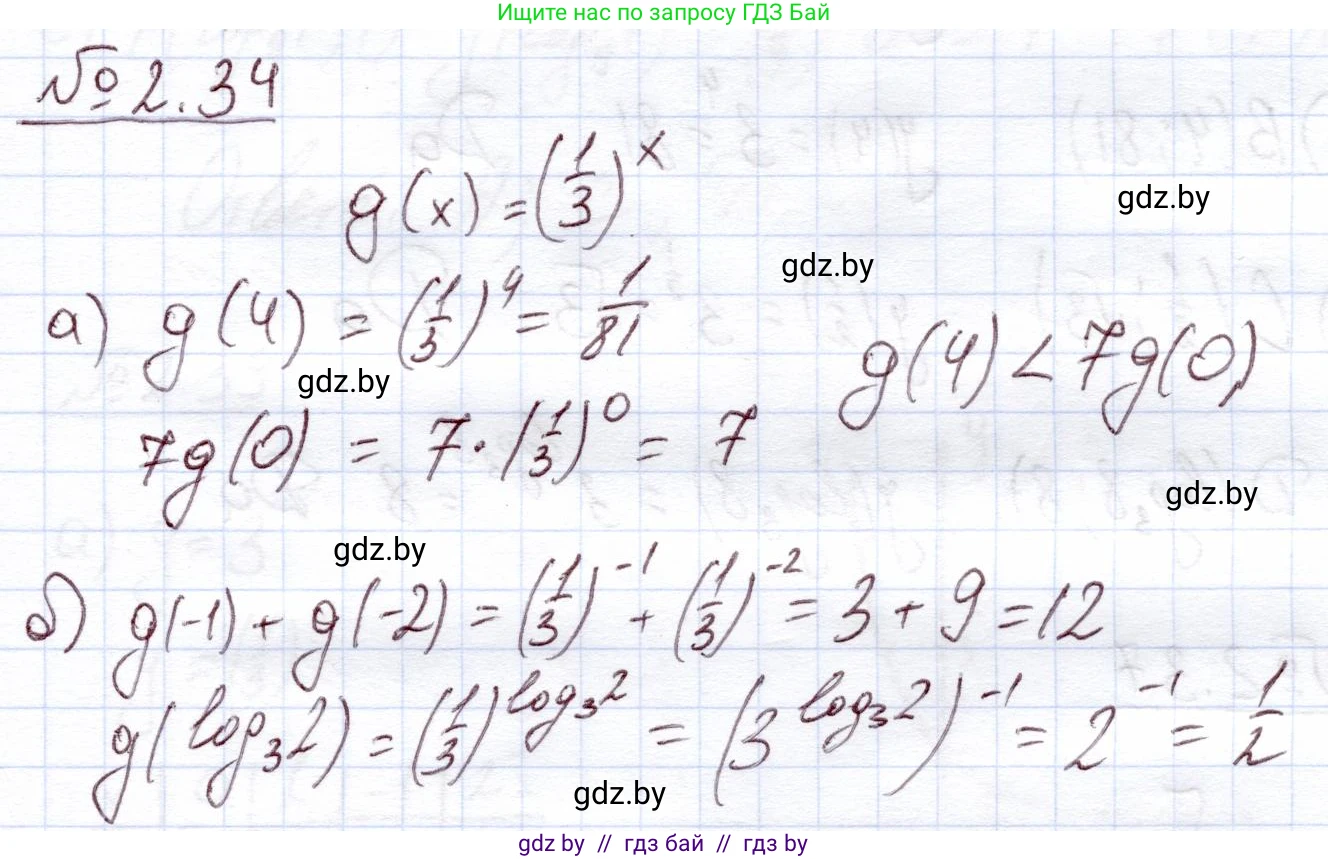 Ищите нас по запросу ГДЗ Бай
№ 2.34
g(x) = (1/3)^x
gdz.by
gdz.by
а) g(4) = (1/3)^4 = 1/81
g(4) < 7g(0)
gdz.by
7g(0) = 7·(1/3)^0 = 7
gdz.by
gdz.by
б) g(-1) + g(-2) = (1/3)^-1 + (1/3)^-2 = 3 + 9 = 12
g(log₃2) = (1/3)^log₃2 = (3^log₃2)^-1 = 2^-1 = 1/2
gdz.by
gdz by // гдз бай // gdz by